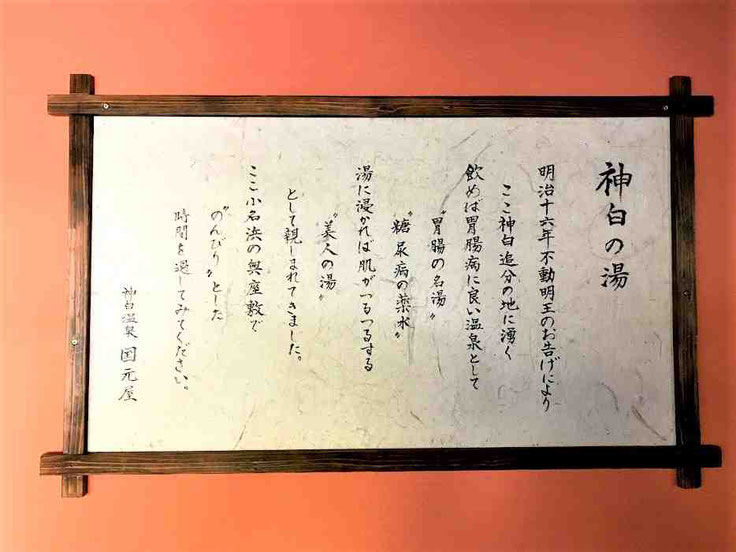 神白の湯
明治十六年不動明王のお告げにより
ここ神白追分の地に湧く
飲めば胃腸病に良い温泉として
〝胃腸の名湯〟
〝糖尿病の薬水〟
湯に浸かれば肌がつるつるする
〝美人の湯〟
として親しまれてきました。
ここ小名浜の奥座敷で
〝のんびり〟とした
時間を過してみてください。
神白温泉 国元屋